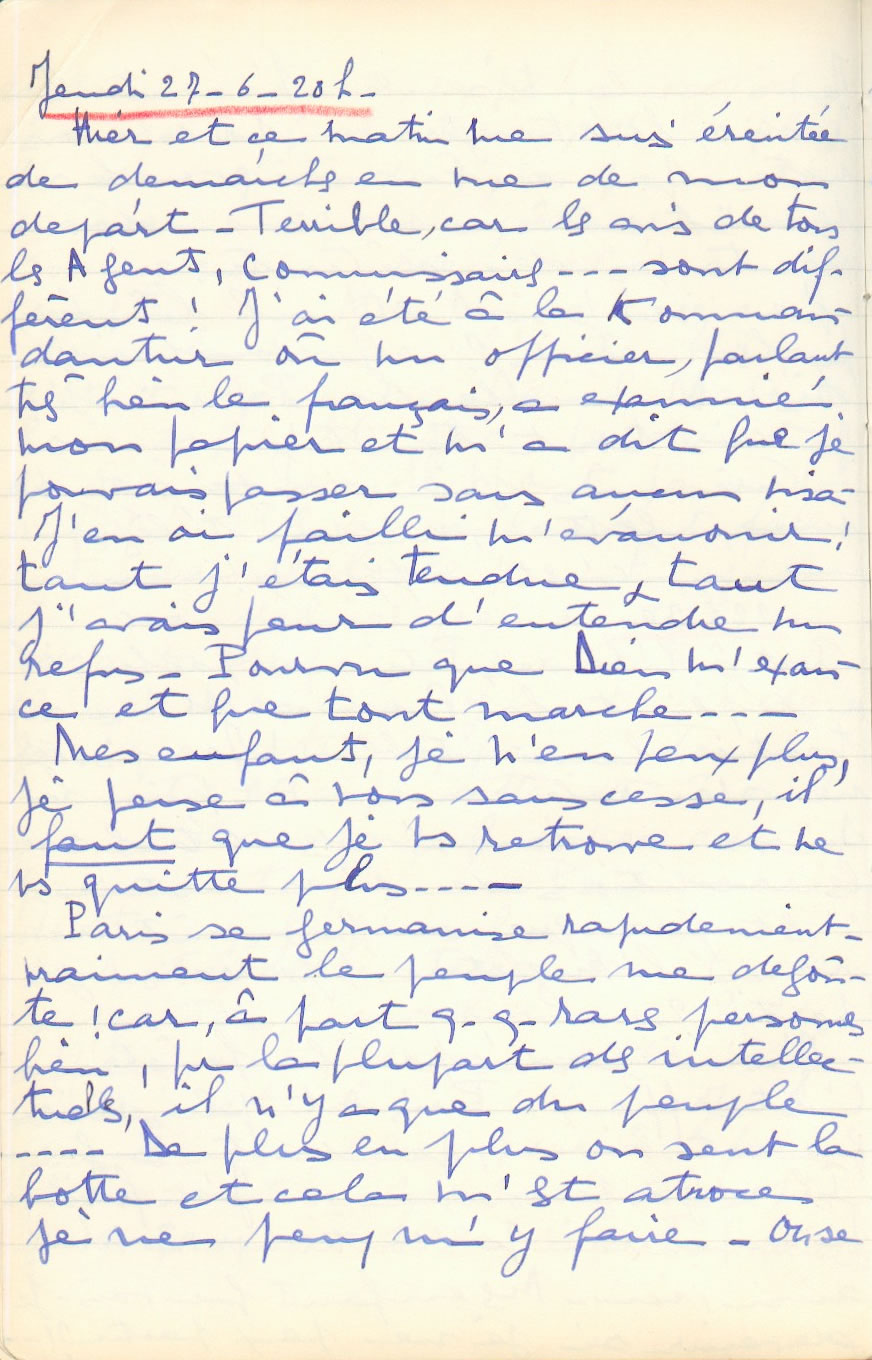 Jeudi 27-6-20h-
Hier et ce matin me suis éreintée
de démarches en vue de mon
départ - Terrible, car les avis de tous
les Agents, Commissaires --- sont dif-
férents! J'ai été à la Komman-
dantur où un officier, parlant
très bien le français, a examiné
mon papier et m'a dit que je
pouvais passer sans aucun visa-
J'en ai failli m'évanouir!
tant j'étais tendue, tant
j'avais peur d'entendre un
refus - Pourvu que Dieu m'exau-
ce et que tout marche ---
Mes enfants, je n'en peux plus,
je pense à vous sans cesse, il
faut que je vs retrouve et ne
vs quitte plus ----
Paris se germanise rapidement-
vraiment le peuple me dégoû-
te! car, à part q-q- rares personnes
bien, pr la plupart des intellec-
tuels, il n'y a que du peuple
---- De plus en plus on sent la
botte et cela m'est atroce
je ne peux m'y faire - On se